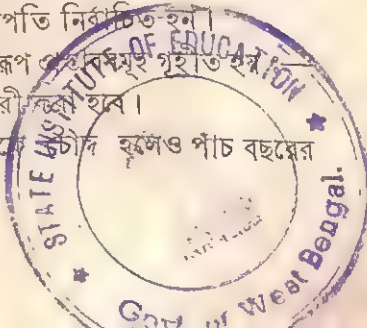 পতি নির্বাচিত হন।
রূপ গৃহীত হয়
হবে।
হলেও পাঁচ বছরের
STATE INSTITUTE OF EDUCATION
Govt. of West Bengal.